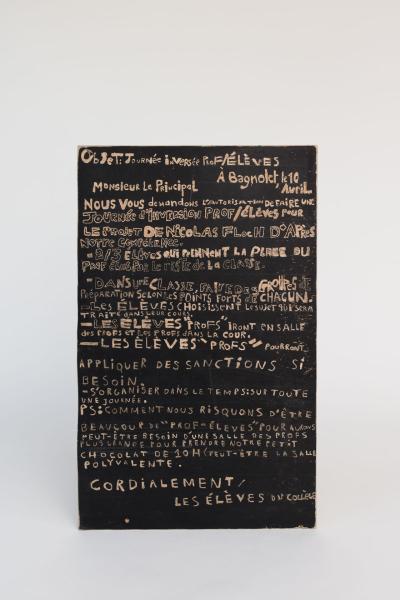 Objet: Journée inversée prof/élèves
À Bagnolet, le 10
Avril
Monsieur Le Principal
Nous Vous demandons l'autorisation de faire une
Journée d'inversion prof/élèves pour
le projet de Nicolas Floch d'après
notre
- 2/3 élèves qui prennent la place du
prof le reste de la classe.
- Dans une classe, faire des groupes de
préparation selon les points forts de chacun.
- Les élèves choisissent le sujet qui sera
traité dans leur cours.
- Les élèves "profs" iront en salle
des profs et les profs dans la cour.
- Les élèves "profs" pourront
appliquer des sanctions si
besoin.
- S'organiser dans le temps: sur toute
une journée.
PS: Comment nous risquons d'être
beaucoup de "prof-élèves" nous aurons
peut-être besoin d'une salle des profs
plus grande pour prendre notre petit
chocolat de 10H (peut-être la salle
polyvalente.
Cordialement,
Les élèves du collège